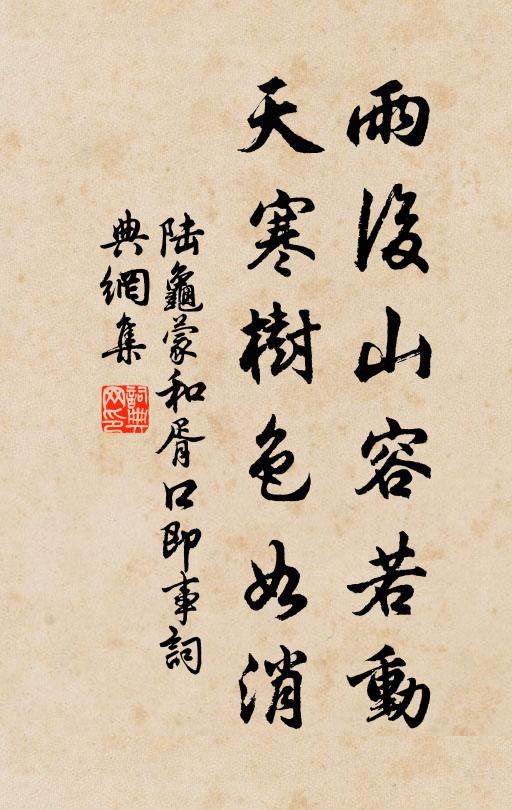 雨後山容若動
天寒樹色如消
陆龜蒙和胥口即事詞
典網集
詞典
网印